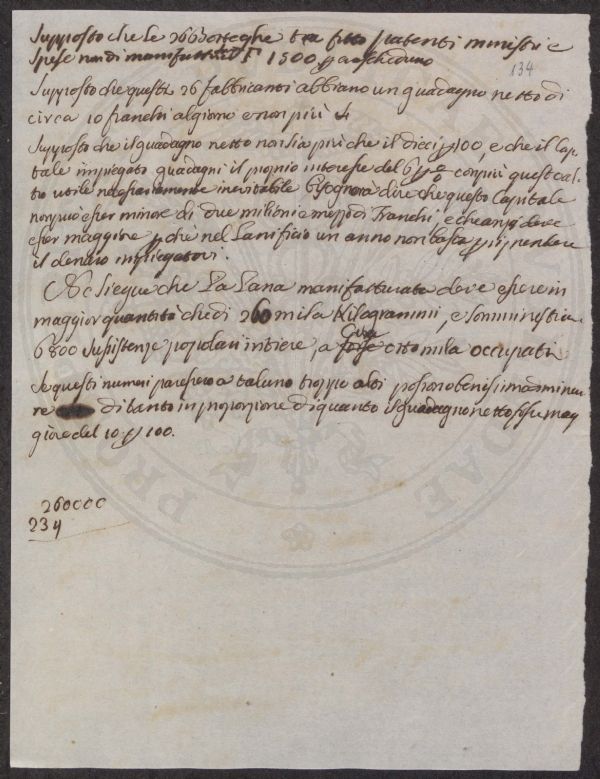 Supposto che le 266 botteghe tra fitto patenti ministri e
spese non di manifattura F 1500 p ascheduno
134
Supposto che questi 26 fabbricanti abbiano un guadagno netto di
circa 10 franchi al giorno e non più
Supposto che il guadagno netto non sia più che il dieci p 100, e che il Cap-
tale impiegato guadagni il proprio interesse del 6 p % con più quest'al-
tro utile necessariamente inevitabile bisognera dire che questo Capitale
non può esser minore di due milioni e mezzo di Franchi, e che anzi deve
esser maggiore p che nel Lanificio un anno non basta p riprendere
il denaro impiegatovi.
Ne siegue che La Lana manifatturata deve essere in
maggior quantità che di 260 mila Kilogrammi, e somministra
6800 sussistenze popolari intiere, a circa otto mila occupati
Se questi numeri paressero a taluno troppo alti possono benissimo sminui-
re di tanto in proporzione di quanto il guadagno netto fosse mag
giore del 10 p 100.
260000
234